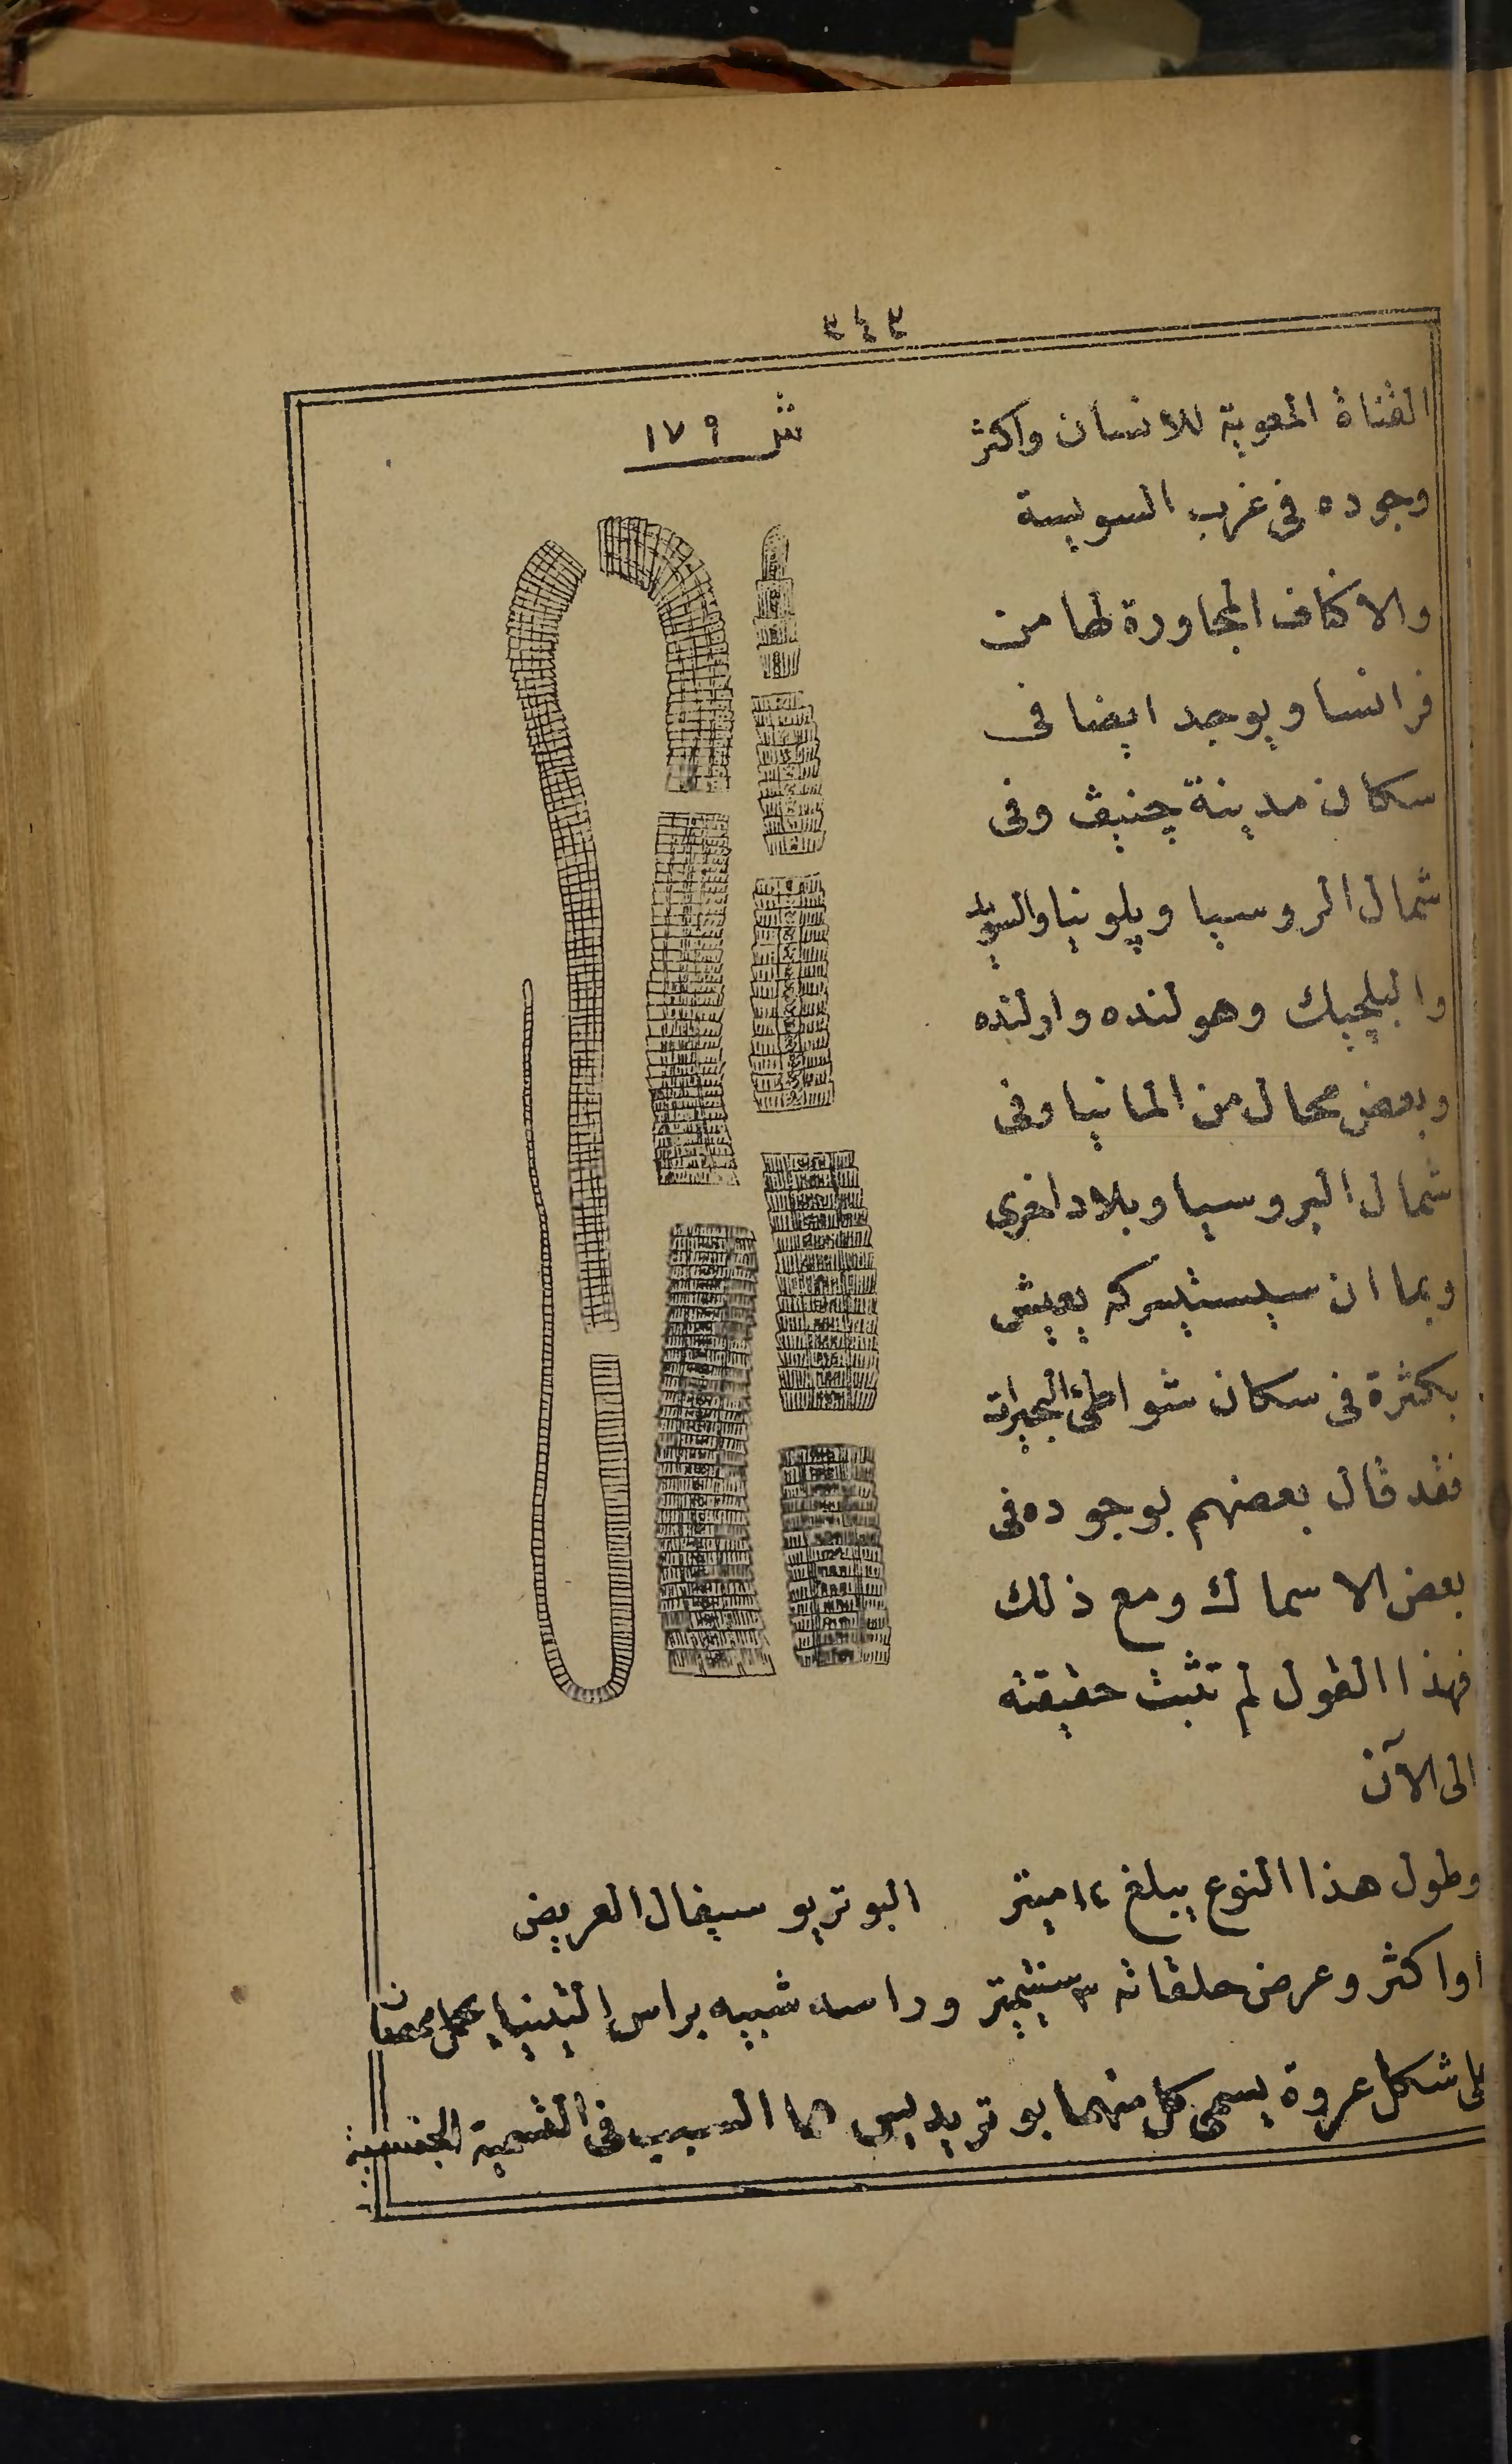 ٣٤٣
شر ١٧٩
القناة المعوية للانسان واكثر
وجوده فى غرب السويسة
والاكناف المجاورة لها من
فرانسا ويوجد ايضا فى
سكان مدينة چنيڤ وفى
شمال الروسيا وپلونيا والسويد
والبلچيك وهولنده وارلنده
وبعض محال من المانيا وفى
شمال البروسيا وبلاد اخرى
وبما ان سيستيسركه يعيش
بكثرة فى سكان شواطئ البحيرات
فقد قال بعضهم بوجوده فى
بعض الاسماك ومع ذلك
فهذا القول لم تثبت حقيقته
الى الآن
وطول هذا النوع يبلغ ١٤ ميتر
البوتريو سيفال العريض
او اكثر وعرض حلقاته ٣ سنتيميتر وراسه شبيه براس التينيا يحمل ممصان
على شكل عروة يسمى كل منهما بوتريديس هما السبب فى القسمية الجنسية